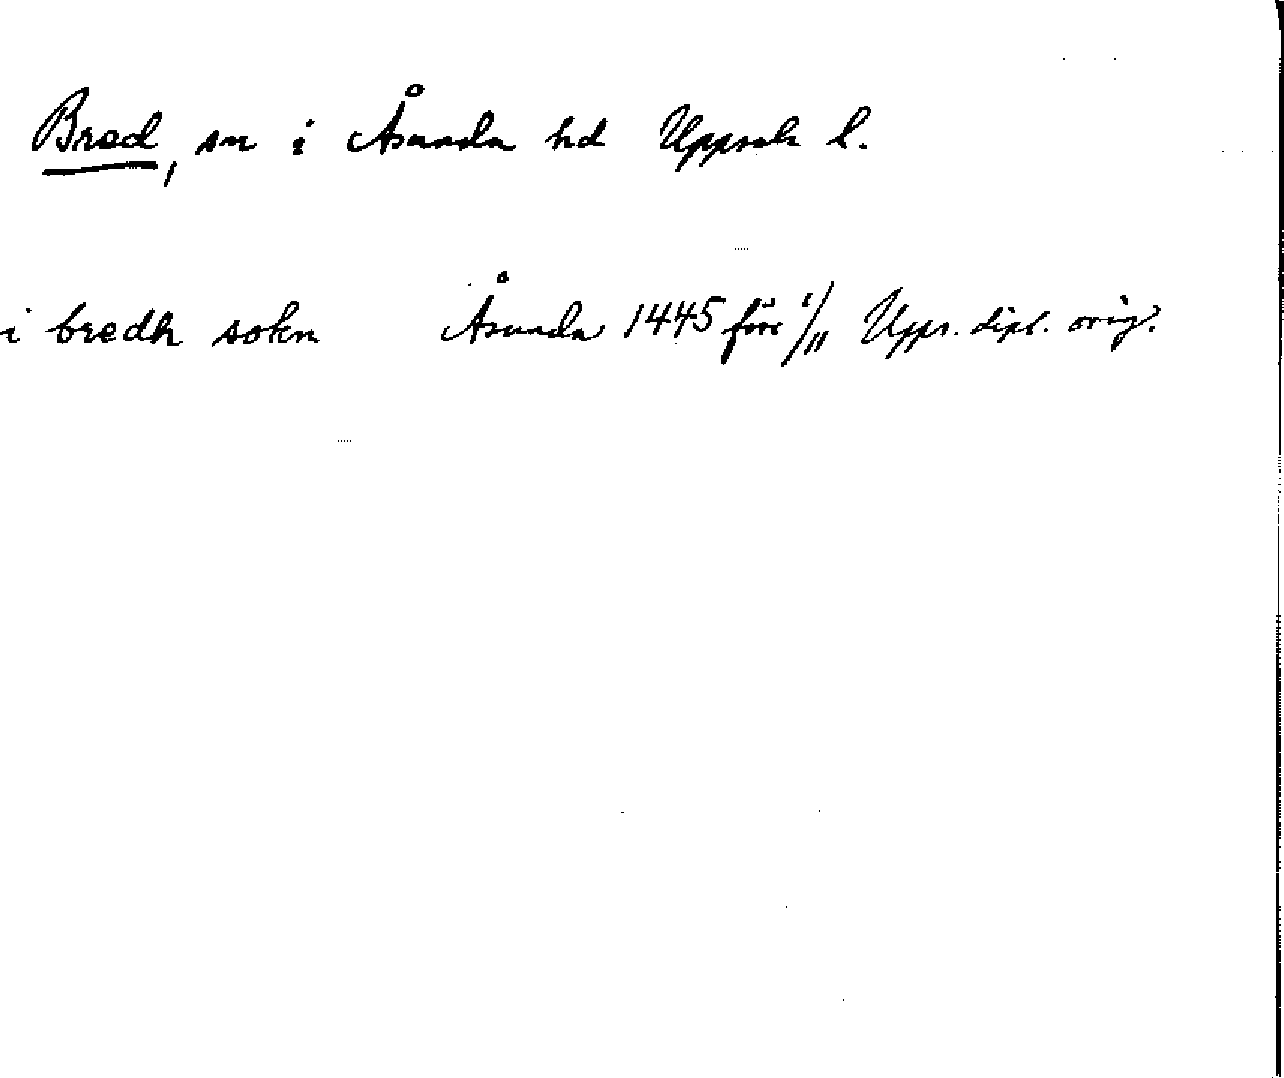 Bred, sn i Åsunda hd Uppsala l.
i bredh sokn Åsunda 1445 före 1/11 Upps. dipl. orig.